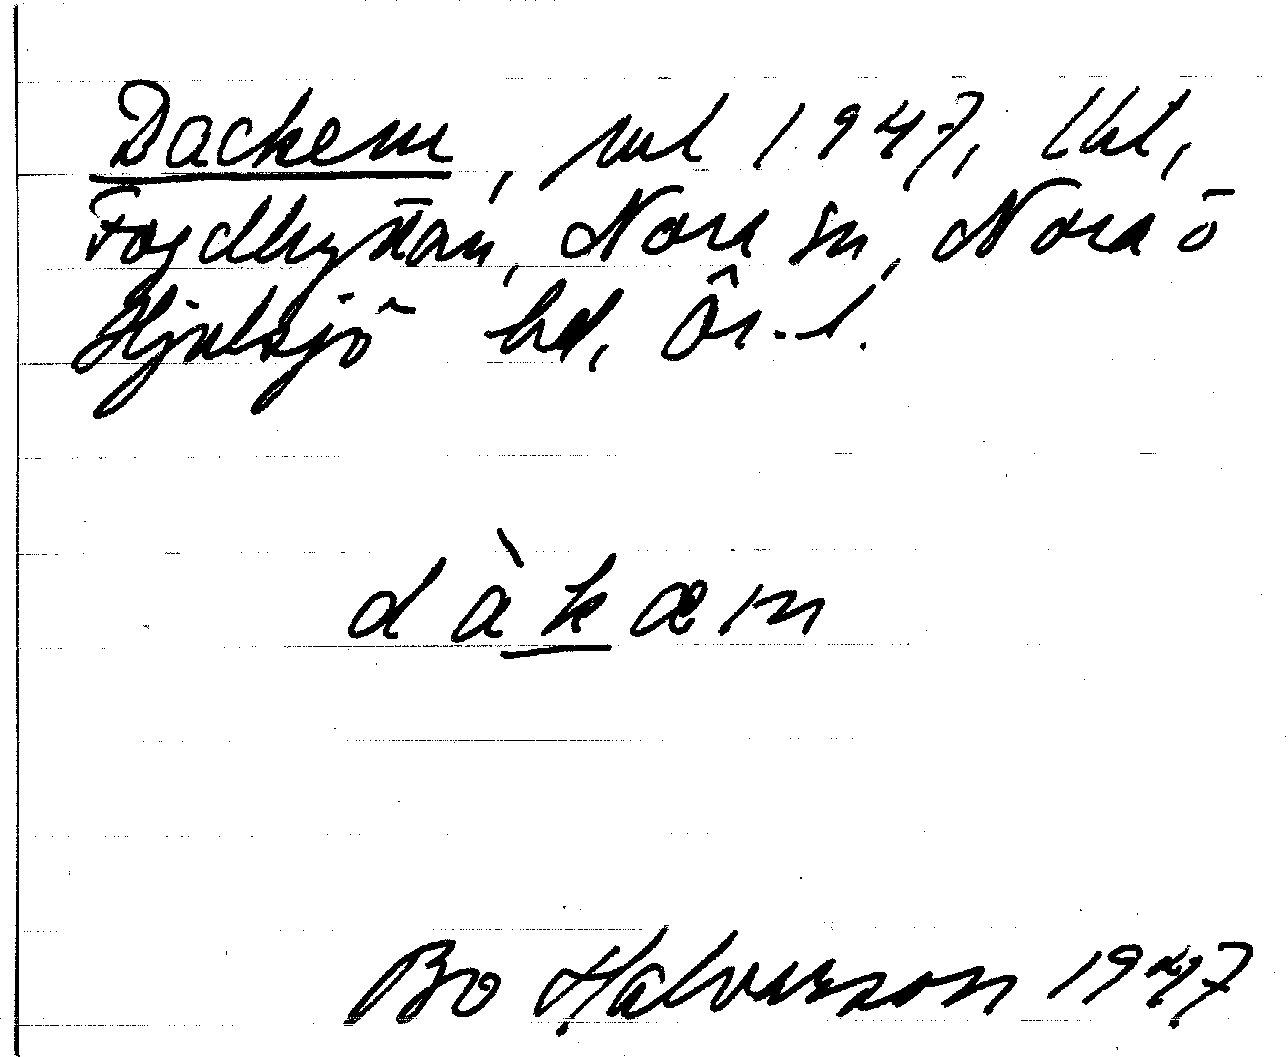 Dackem, utl 1947, lkl,
Fogdhyttan, Nora sn, Nora o
Hjulsjö hd, Ör. l.
dàkæm
Bo Halvarson 1947